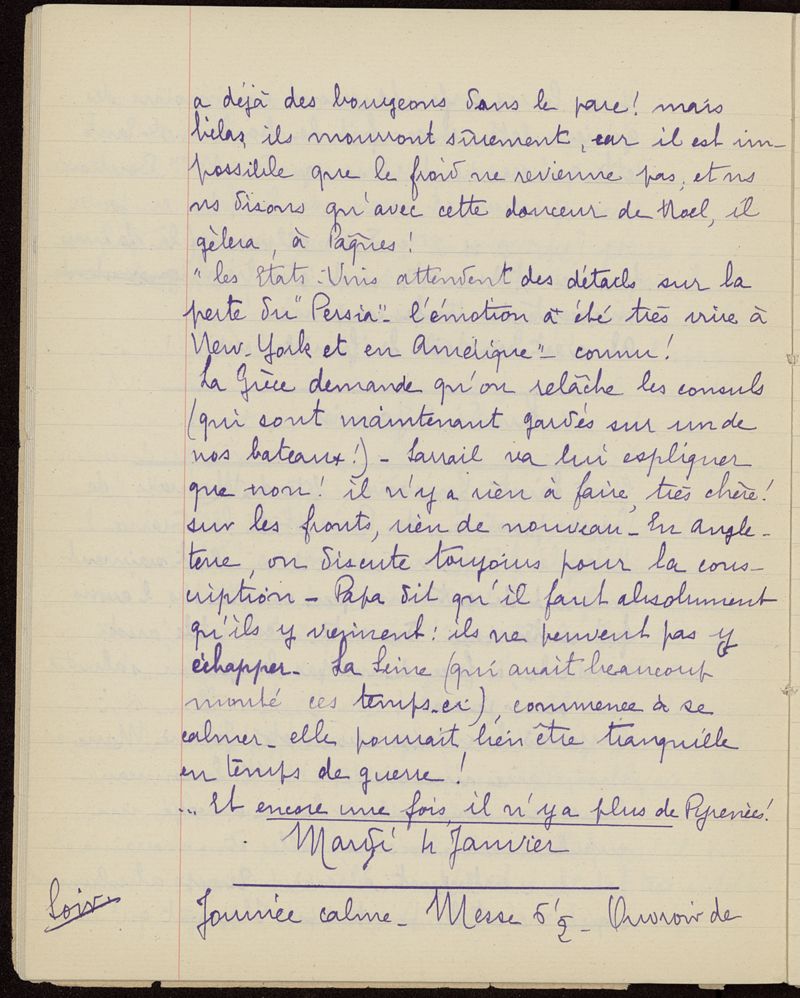 a déjà des bourgeons dans le parc! mais
hélas, ils mourront sûrement, car il est im-
possible que le froid ne revienne pas, et ns
ns disons qu'avec cette douceur de Noel, il
gèlera, à Pâques!
"les Etats-Unis attendent des détails sur la
perte du "Persia" - l'émotion a été très vive à
New-York et en Amérique" - connu!
La Grèce demande qu'on relâche les consuls
(qui sont maintenant gardés sur un de
nos bateaux!) - Sarrail va lui expliquer
que non! il n'y a rien à faire, très chère!
sur les fronts, rien de nouveau - En Angle-
terre, on discute toujours pour la cons-
cription - Papa dit qu'il faut absolument
qu'ils y viennent: ils ne peuvent pas y
échapper - La Seine (qui avait beaucoup
monté ces temps-ci) commence à se
calmer - elle pourrait bien être tranquille
en temps de guerre!
... Et encore une fois, il n'y a plus de Pyrenées!
Mardi 4 Janvier
Soir.
Journée calme - Messe - Ouvroir de